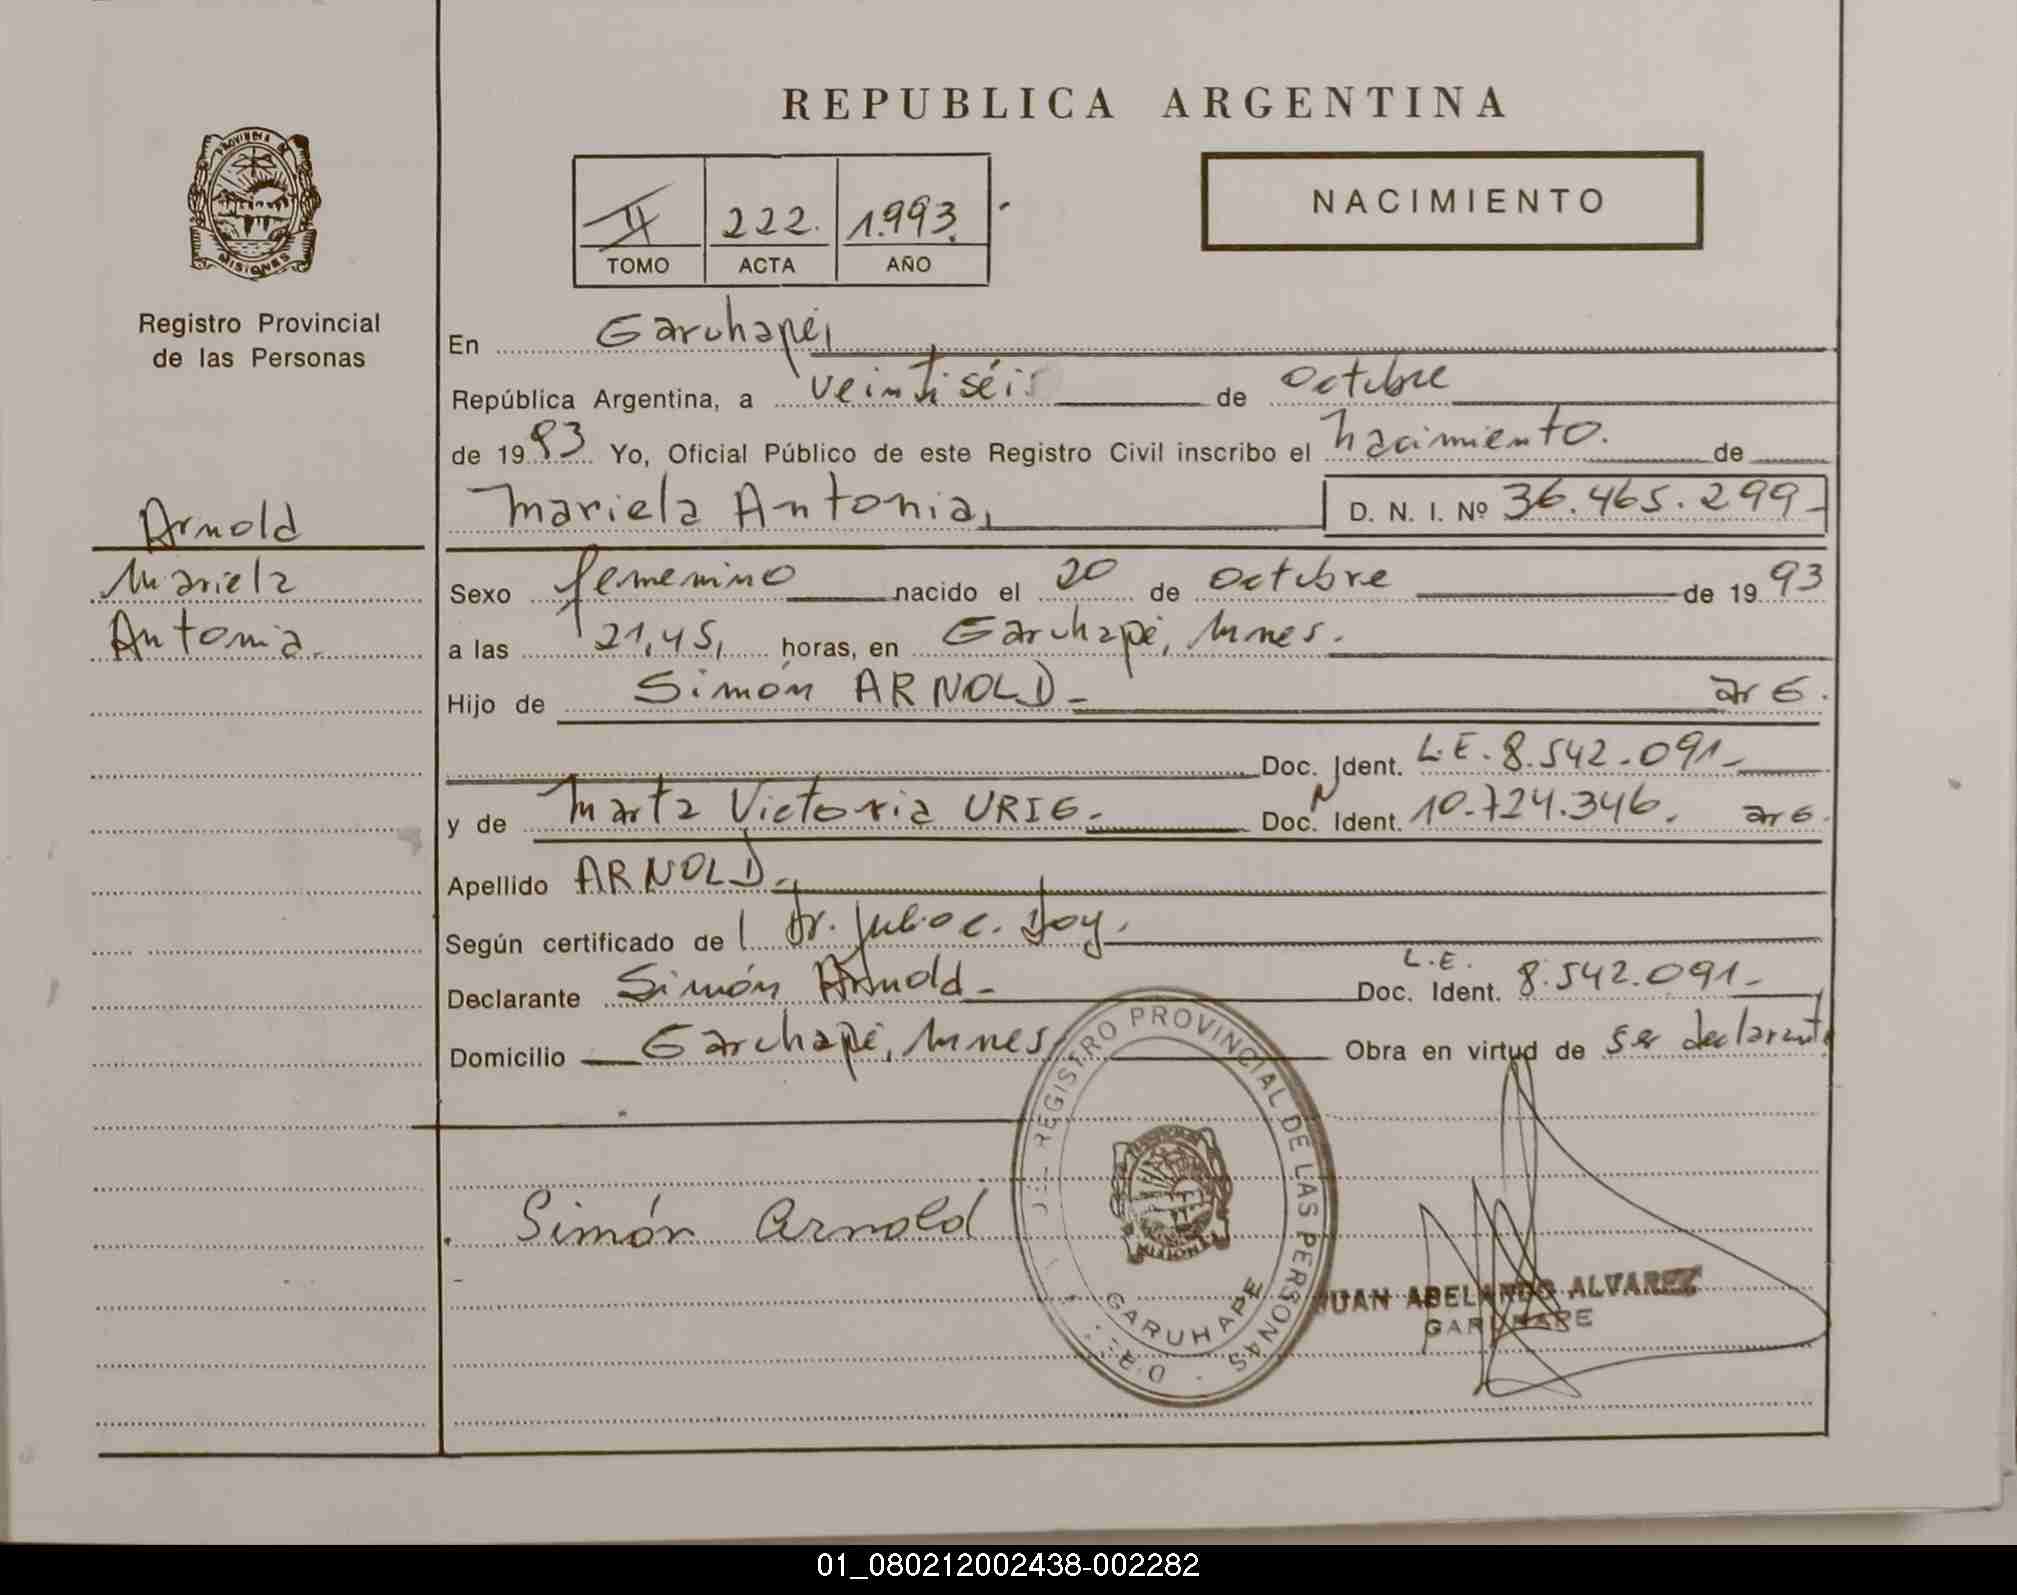 REPUBLICA ARGENTINA
PROVINCIA DE MISIONES
Registro Provincial
de las Personas
II 222. 1.993.
TOMO ACTA AÑO
NACIMIENTO
En Garuhapé,
República Argentina, a veintiséis de octubre
de 1993 Yo, Oficial Público de este Registro Civil inscribo el nacimiento. de
Mariela Antonia, D. N. I. Nº 36.465.299-
Arnold
Mariela
Antonia.
Sexo femenino nacido el 20 de octubre de 1993
a las 21,45, horas, en Garuhapé, Mnes.
Hijo de Simón ARNOLD- arG.
Doc. Ident. L.E. 8.542.091-
y de Marta Victoria URIG.- Doc. Ident. 10.724.346. arG.
Apellido ARNOLD.-
Según certificado de Dr. Julio C.
Declarante Simón Arnold- Doc. Ident. L.E. 8.542.091-
Domicilio Garuhapé, Mnes Obra en virtud de ser declarante
REGISTRO PROVINCIAL DE LAS PERSONAS
GARUHAPE
Simón Arnold
JUAN ABELARDO ALVAREZ
GARUHAPE
01_080212002438-002282